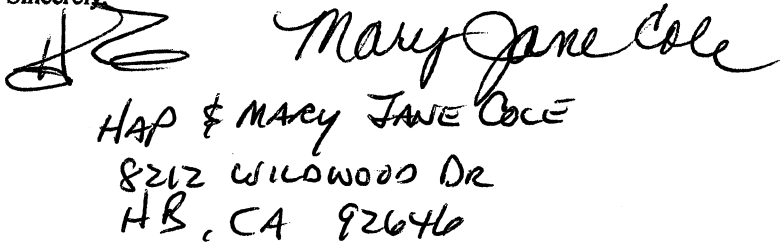 Sincerely,
Mary Jane Cole
HAP & MARY JANE COLE
8212 WILDWOOD DR
HB, CA 92646